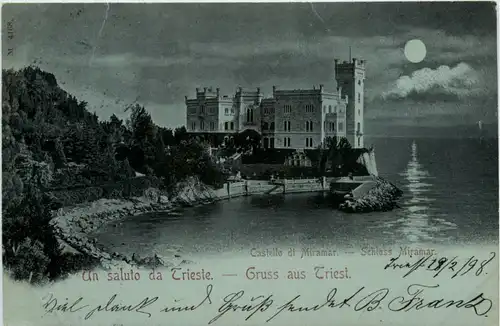 M. 4168.
Castello di Miramar. — Schloss Miramar.
Un saluto da Trieste. — Gruss aus Triest.
Triest 19/2/98
Viel Dank und Grüße sendet B. Frantz